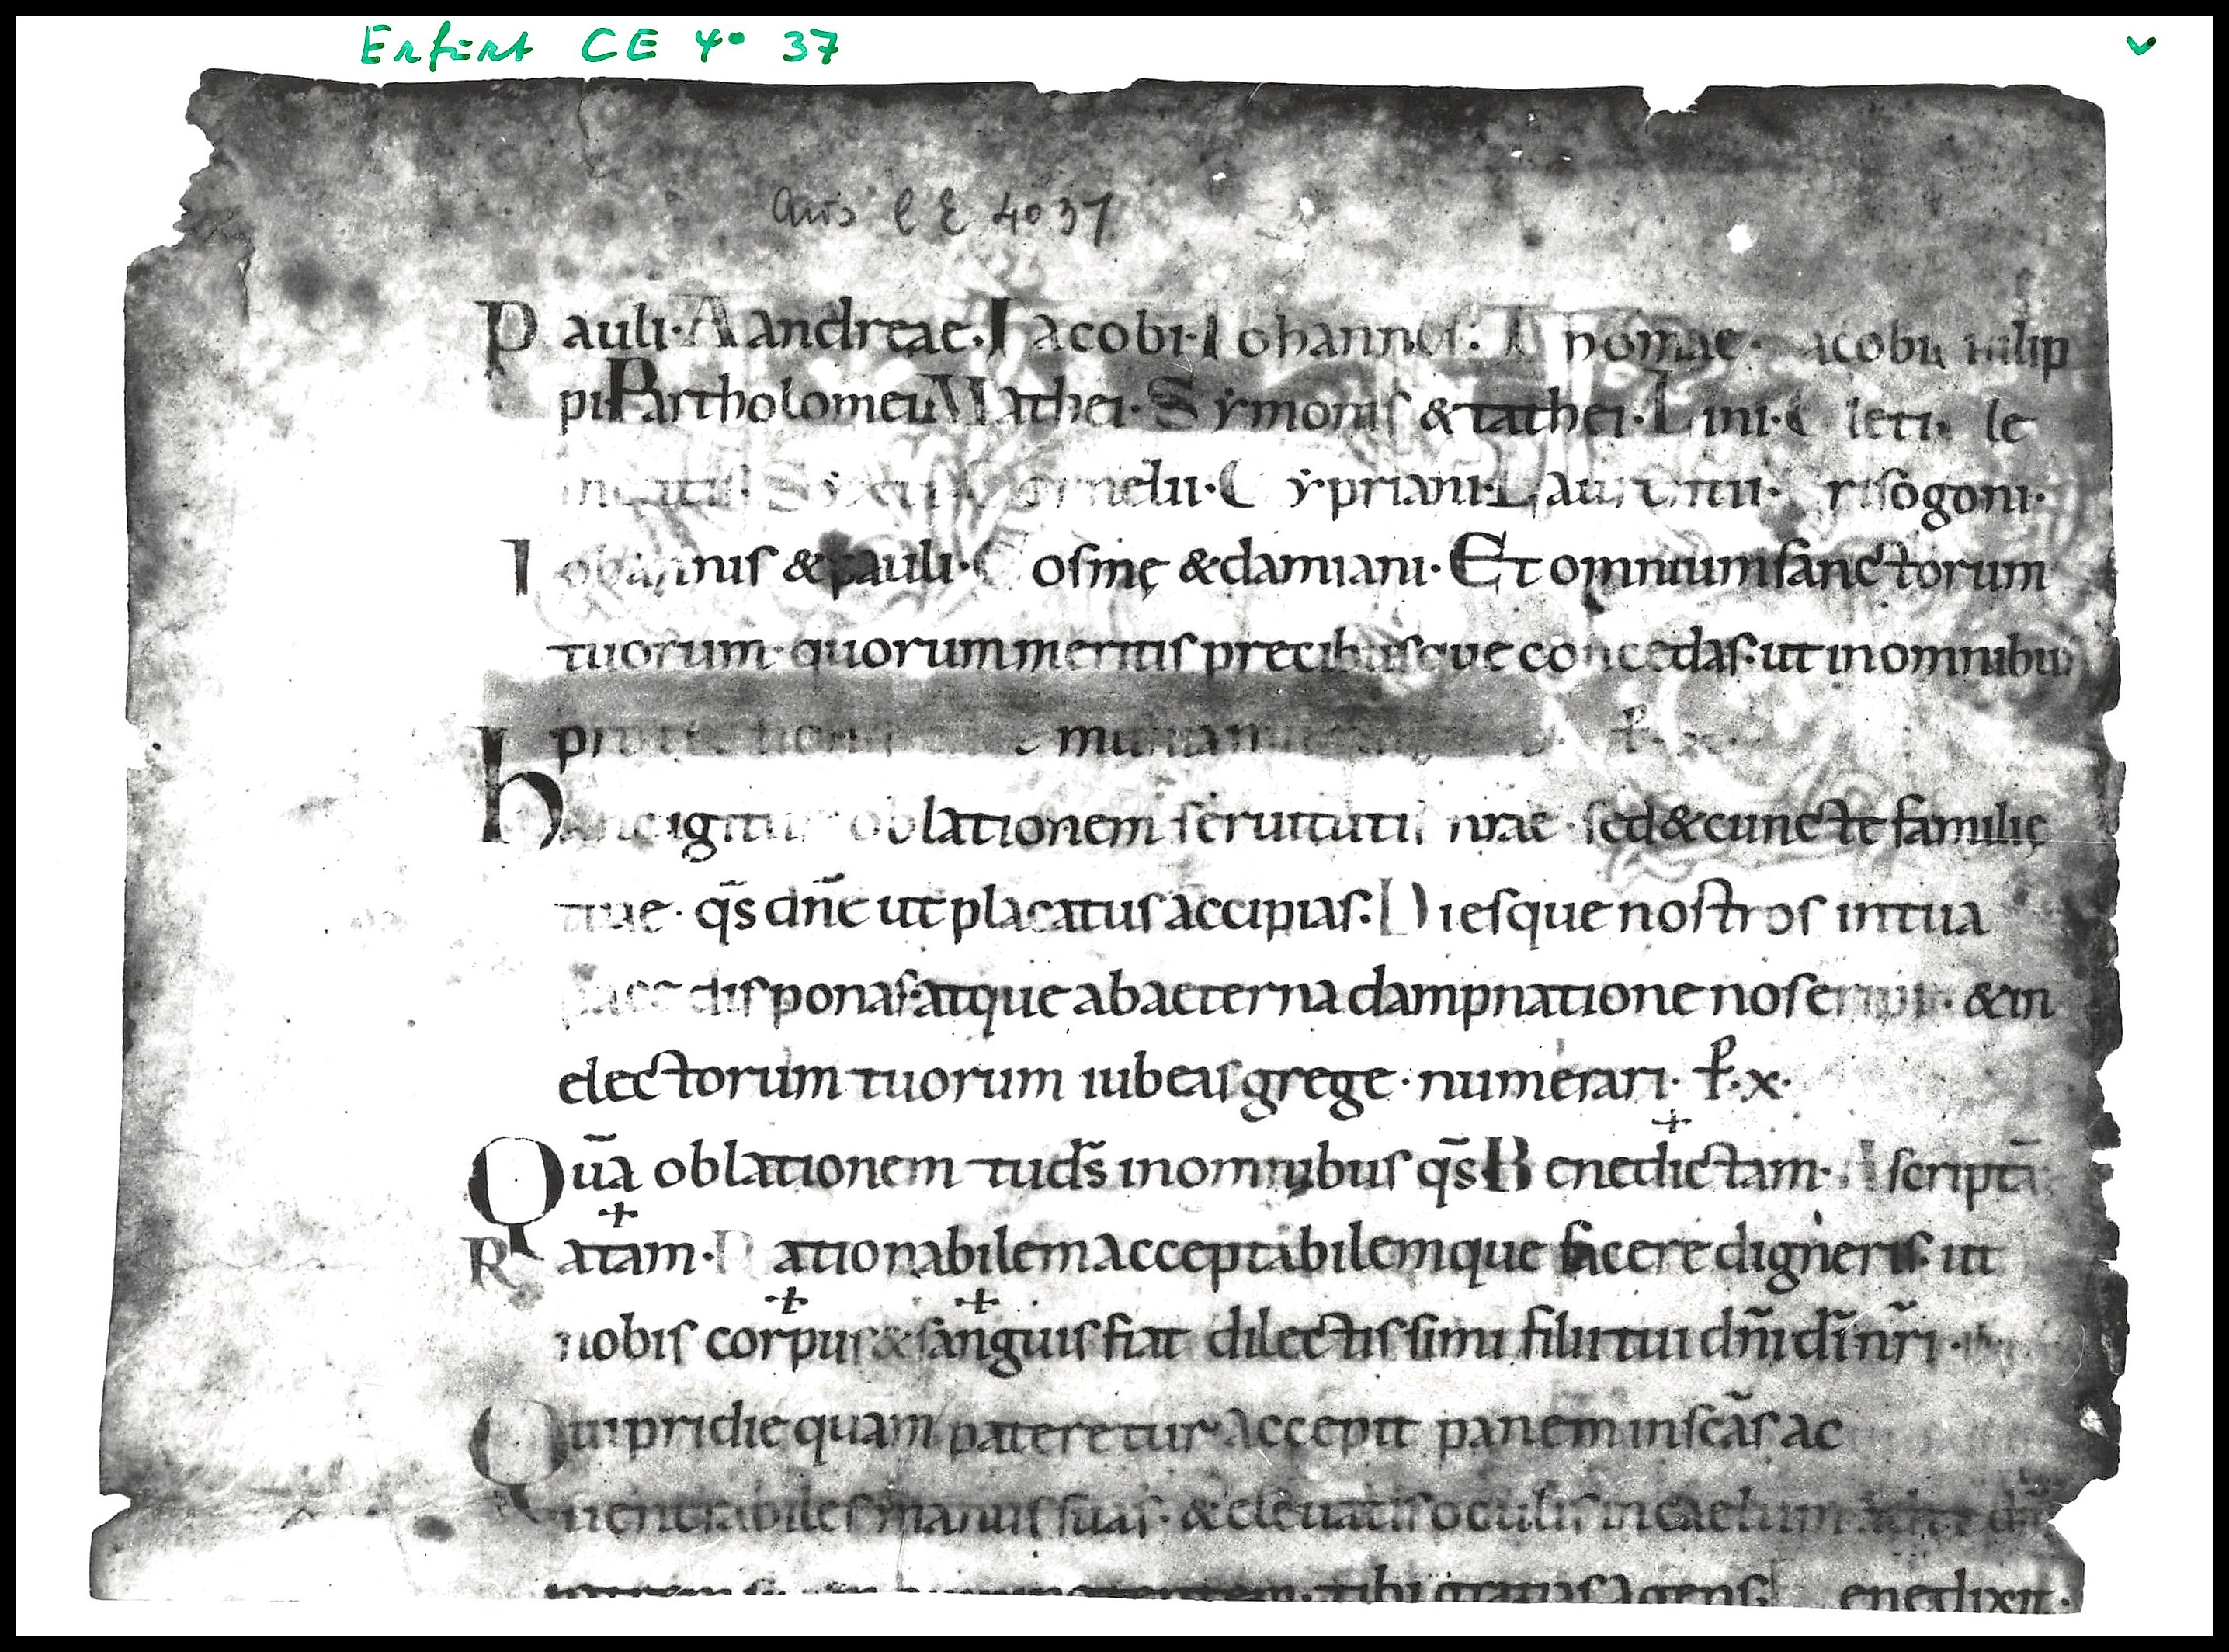 Erfurt CE 4° 37
Aus C E 4° 37
Pauli· Aandreae· Iacobi· Iohannes: Thomae· acobi
pi Bartholomei Mathei· Symonis & tathei· Lini· Cleti· le
Syxti ornelii· Cypriani· Laurentii· risogoni·
Iohannis & pauli· Cosmę & damiani· Et omnium sanctorum
tuorum· quorum meritis precibusque concedas· ut in omnibus
ꝑ· x·
hanc igitur oblationem seruitutis nr̄ae· sed & cuncte familię
tuae· qs̄ dn̄e ut placatus accipias: Diesque nostros in tua
pace disponas· atque ab aeterna dampnatione nos eripi· & in
electorum tuorum iubeas grege· numerari· ꝑ· x·
Quā oblationem tu ds̄ in omnibus qs̄ Benedictam· Ascriptā
Ratam· Rationabilem acceptabilemque facere digneris· ut
nobis corpus & sanguis fiat dilectissimi filii tui dn̄i dī nr̄i·
Qui pridie quam pateretur accepit panem in scās ac
uenerabiles manus suas· & eleuatis oculis in caelum
tibi gratias agens enedixit·